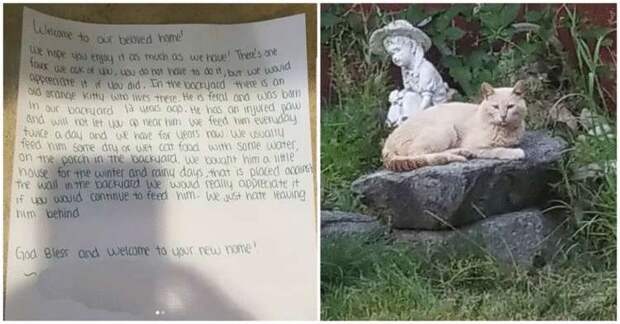 Welcome to our beloved home!
We hope you enjoy it as much as we have! There's one
favor we ask of you, you do not have to do it, but we would
appreciate it if you did. In the backyard there is an
old orange kitty who lives there. He is feral and was born
In our backyard 13 years ago. He has an injured paw
and will not let you go near him. We feed him everyday
twice a day and we have for years now. We usually
feed him some dry or wet cat food with some water,
on the porch in the backyard. We bought him a little
house for the winter and rainy days, that is placed against
the wall in the backyard. We would really appreciate it
if you would continue to feed him. We just hate leaving
him behind.
God Bless and welcome to your new home!